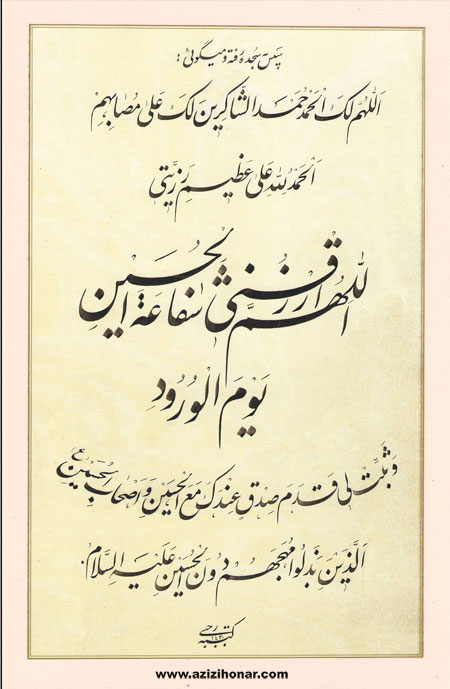 سپس سجده رفته و میگوئی:
اَللّهُمَّ لَکَ الْحَمْدُ حَمْدَ الشّاکِرینَ لَکَ عَلی مُصابِهِم
اَلْحَمْدُ لِلّهِ عَلی عَظیمِ رَزِیَّتی
اَللّهُمَّ ارْزُقْنی شَفاعَةَ الْحُسَیْنِ
یَوْمَ الْوُرُودِ
وَ ثَبِّتْ لی قَدَمَ صِدْقٍ عِنْدَکَ مَعَ الْحُسَیْنِ وَ اَصْحابِ الْحُسَیْنِ ع
اَلَّذینَ بَذَلُوا مُهَجَهُمْ دُونَ الْحُسَیْنِ عَلَیْهِ السَّلامُ.
کتبه
www.azizihonar.com